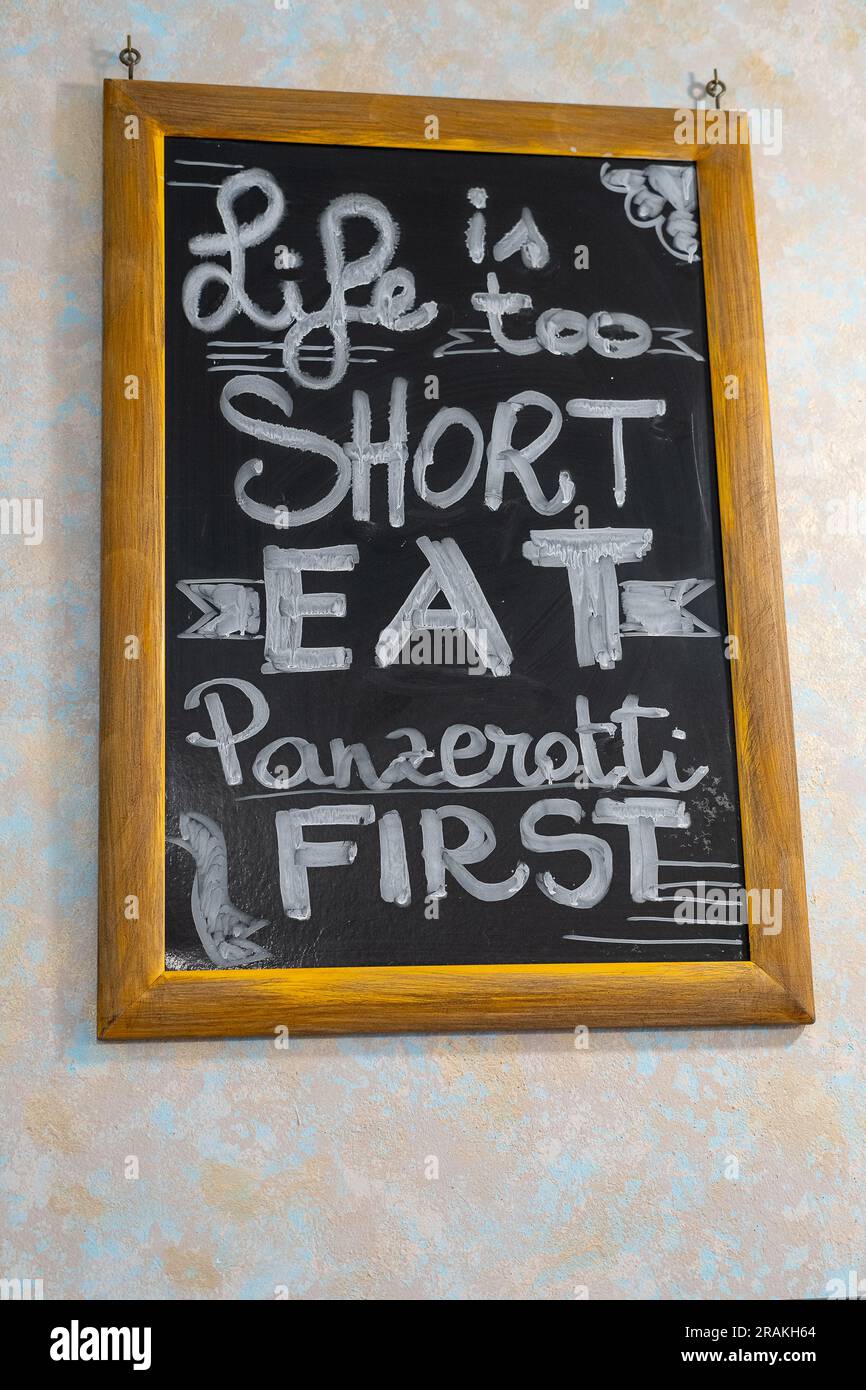 Life is
too
SHORT
EAT
Panzerotti
FIRST
alamy
Image ID: 2RAKH64
www.alamy.com